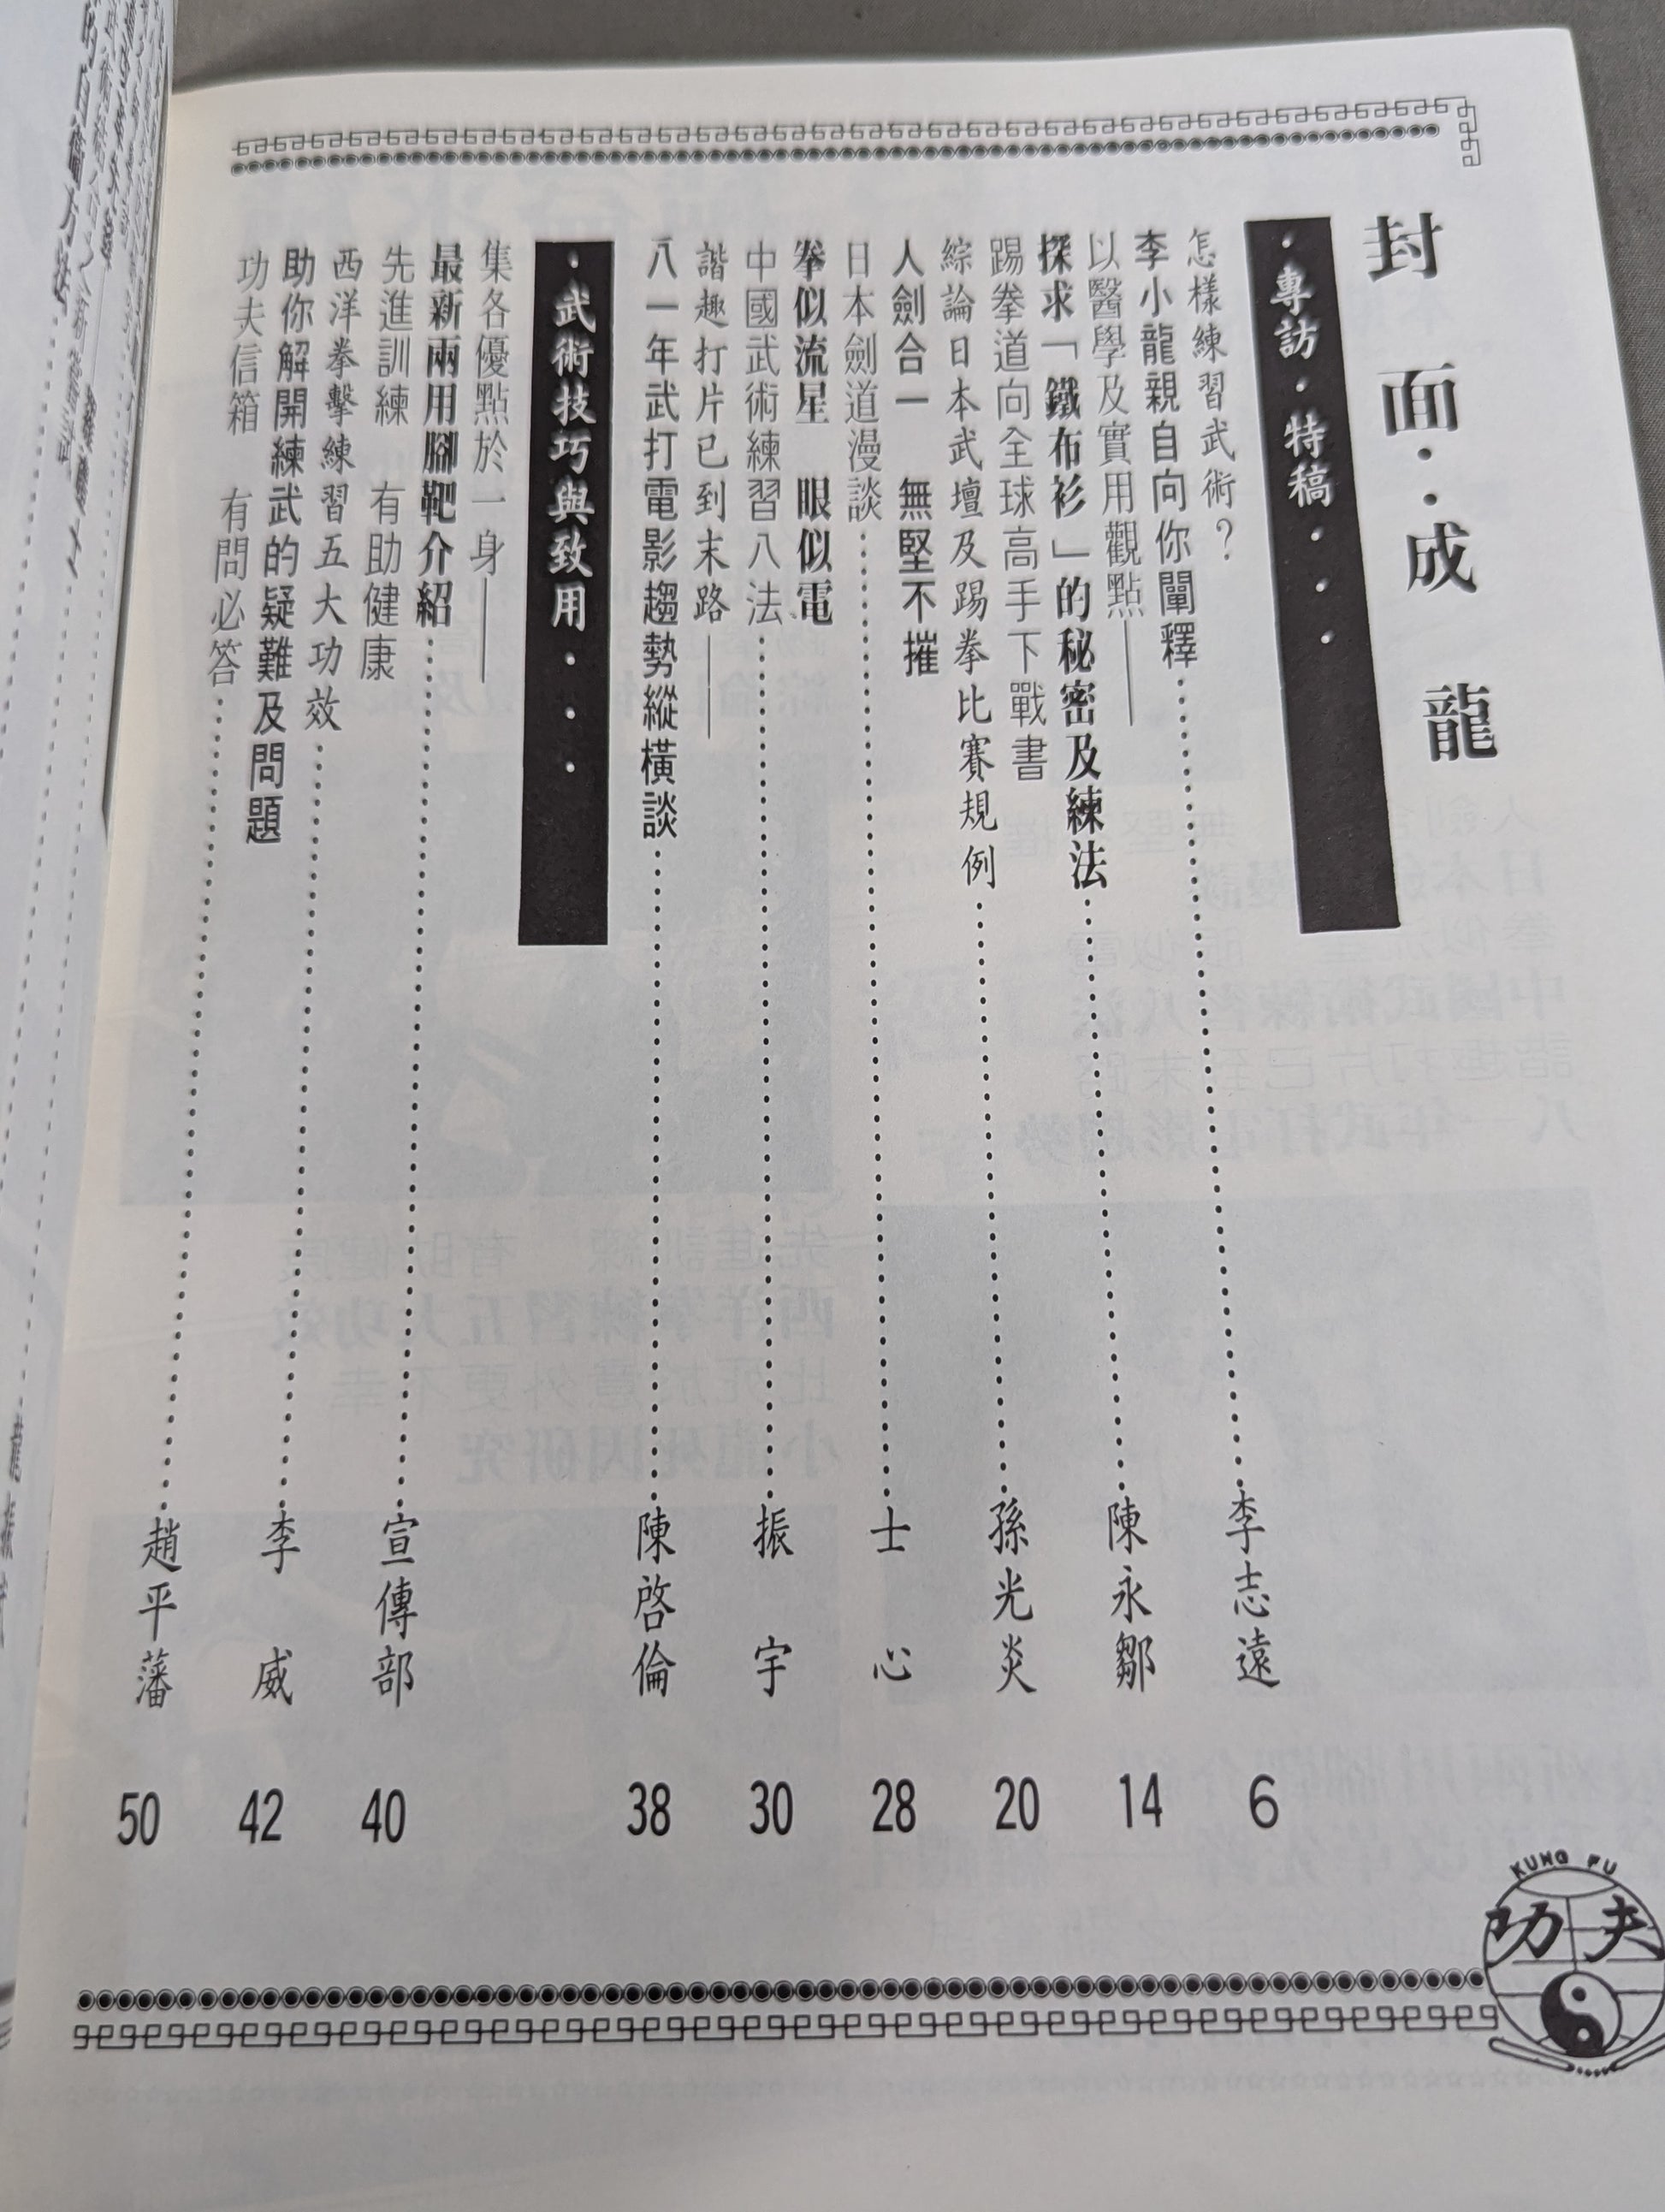 封面：成龍
·專訪·特稿····
怎樣練習武術？
李小龍親自向你闡釋……李志遠 6
以醫學及實用觀點——
探求「鐵布衫」的秘密及練法……陳永鄒 14
踢拳道向全球高手下戰書
綜論日本武壇及踢拳比賽規例……孫光炎 20
人劍合一　無堅不摧
日本劍道漫談……士心 28
拳似流星　眼似電
中國武術練習八法……振宇 30
諧趣打片已到末路——
八一年武打電影趨勢縱橫談……陳啓倫 38
·武術技巧與致用···
集各優點於一身——
最新兩用腳靶介紹……宣傳部 40
先進訓練　有助健康
西洋拳擊練習五大功效……李威 42
助你解開練武的疑難及問題
功夫信箱　有問必答……趙平藩 50
KUNG FU
功夫